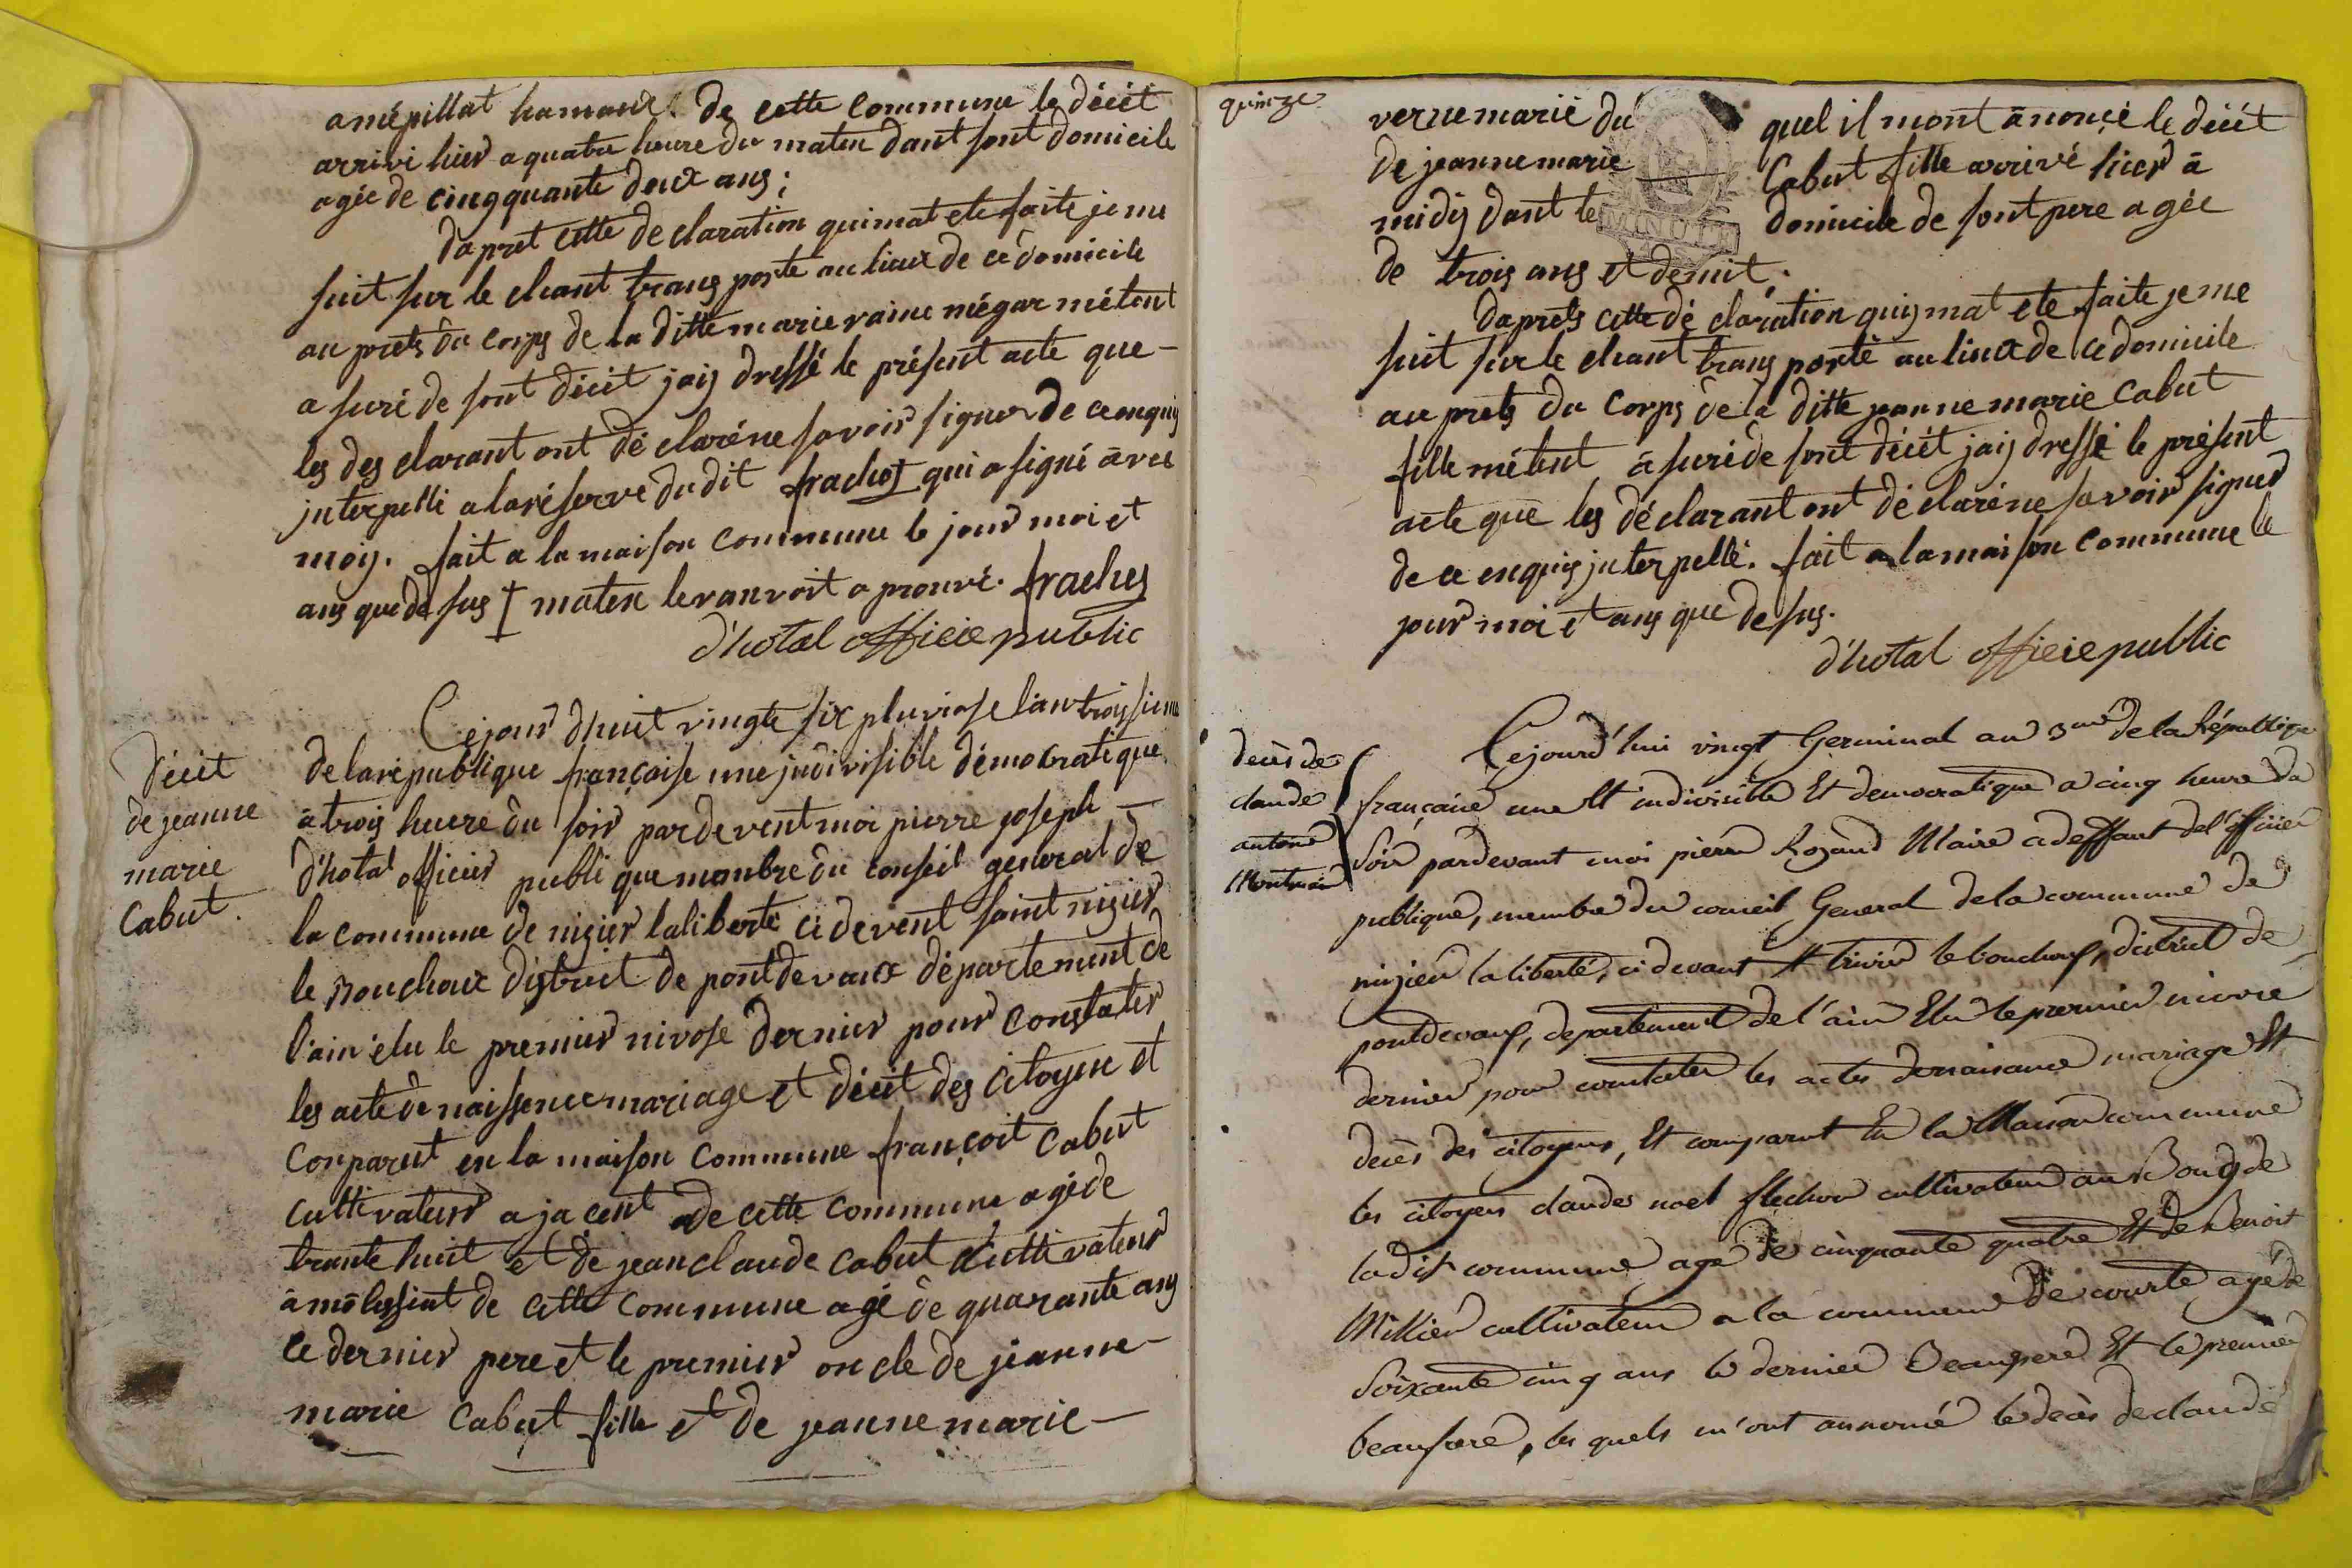 amépillat hamaux de cette commune le décét
arrivé hier a quatre heure du maten dant sont domicile
agée de cinqquante deux ans;
dapret cette declaration quimat ete faite je me
suit sur le chant trans porte au lieux de ce domicile
au prets du corps de la ditte marie raine mégar métent
a suré de sont décét jaij dressé le présent acte que
les des clarant ont dé claréne savoir signer de ce enquij
juterpellé a la réserve du dit frachet qui a signé avec
moij. fait a la maison commune le jour moi et
ans que de sus † maten levanvoit a prouvé. frachey
d'hotal officié public
décét
de jeanne
marie
Cabut.
Cejour d'huit vingte six pluviose lan troissieme
de la republique françaisse une judivisible démocratique
à trois heure du soir par de vent moi pierre joseph
d'hotal officier publi que membre du conseil general de
la commune de nizier laliberté ci devent saint nizier
le Bouchoux district de pontdevaux département de
l'ain élu le premier nivose dernier pour constater
les acte de naissence mariage et décét des citoyen et
Conparut en la maison commune françoit Cabut
Cultivateur a ja cent de cette commune agé de
trante huit et de jean claude cabut cultivateur
à molissiat de cette commune agé de quarante ans
le dernier pere et le premier on cle de jeanne
marie Cabut fille et de jeanne marie
quinze
verne marié du quel il mont ânoncé le décét
de jeanne marie Cabut fille arrivé hier à
midij dant le domicile de sont pere agée
MINUTE
de trois ans et demit;
daprets cette dé claration quij mat ete faite je me
suit sur le chant trans porté au lieux de ce domicile
au prets du corps de la ditte jeanne marie Cabut
fille métent à suré de sont décét jaij dressé le présent
acte que les déclarant ont dé claréne savoir signer
de ce enquis juterpellé. fait a la maison commune le
jour moi et ans que de sus.
d'hotal officié public
decès de
claude
antoine
Montrain
Cejourd'hui vingt Germinal an 3me de la République
françaice une Et indivisible Et democratique a cinq heure du
Soir pardevant moi pierre Rozand Maire a deffaut de l'officier
publique, membre du conseil General de la commune de
nizier la liberté, ci devant St trivier le bouchoux, district de
pontdevaux, departement de l'ain Elu le premier nivose
dernier pour constater les actes denaisance mariage Et
decès des citoyens, Et comparut En la Maison commune
les citoyens claude noel flechon cultivateur au Bourg de
ladit commune age de cinquante quatre Et de Benoit
Millier cultivateur a la commune de courte agé de
Soixante cinq ans le dernier Beaupere Et le premier
beaufrere, les quels m'ont annoncé le decès declaude